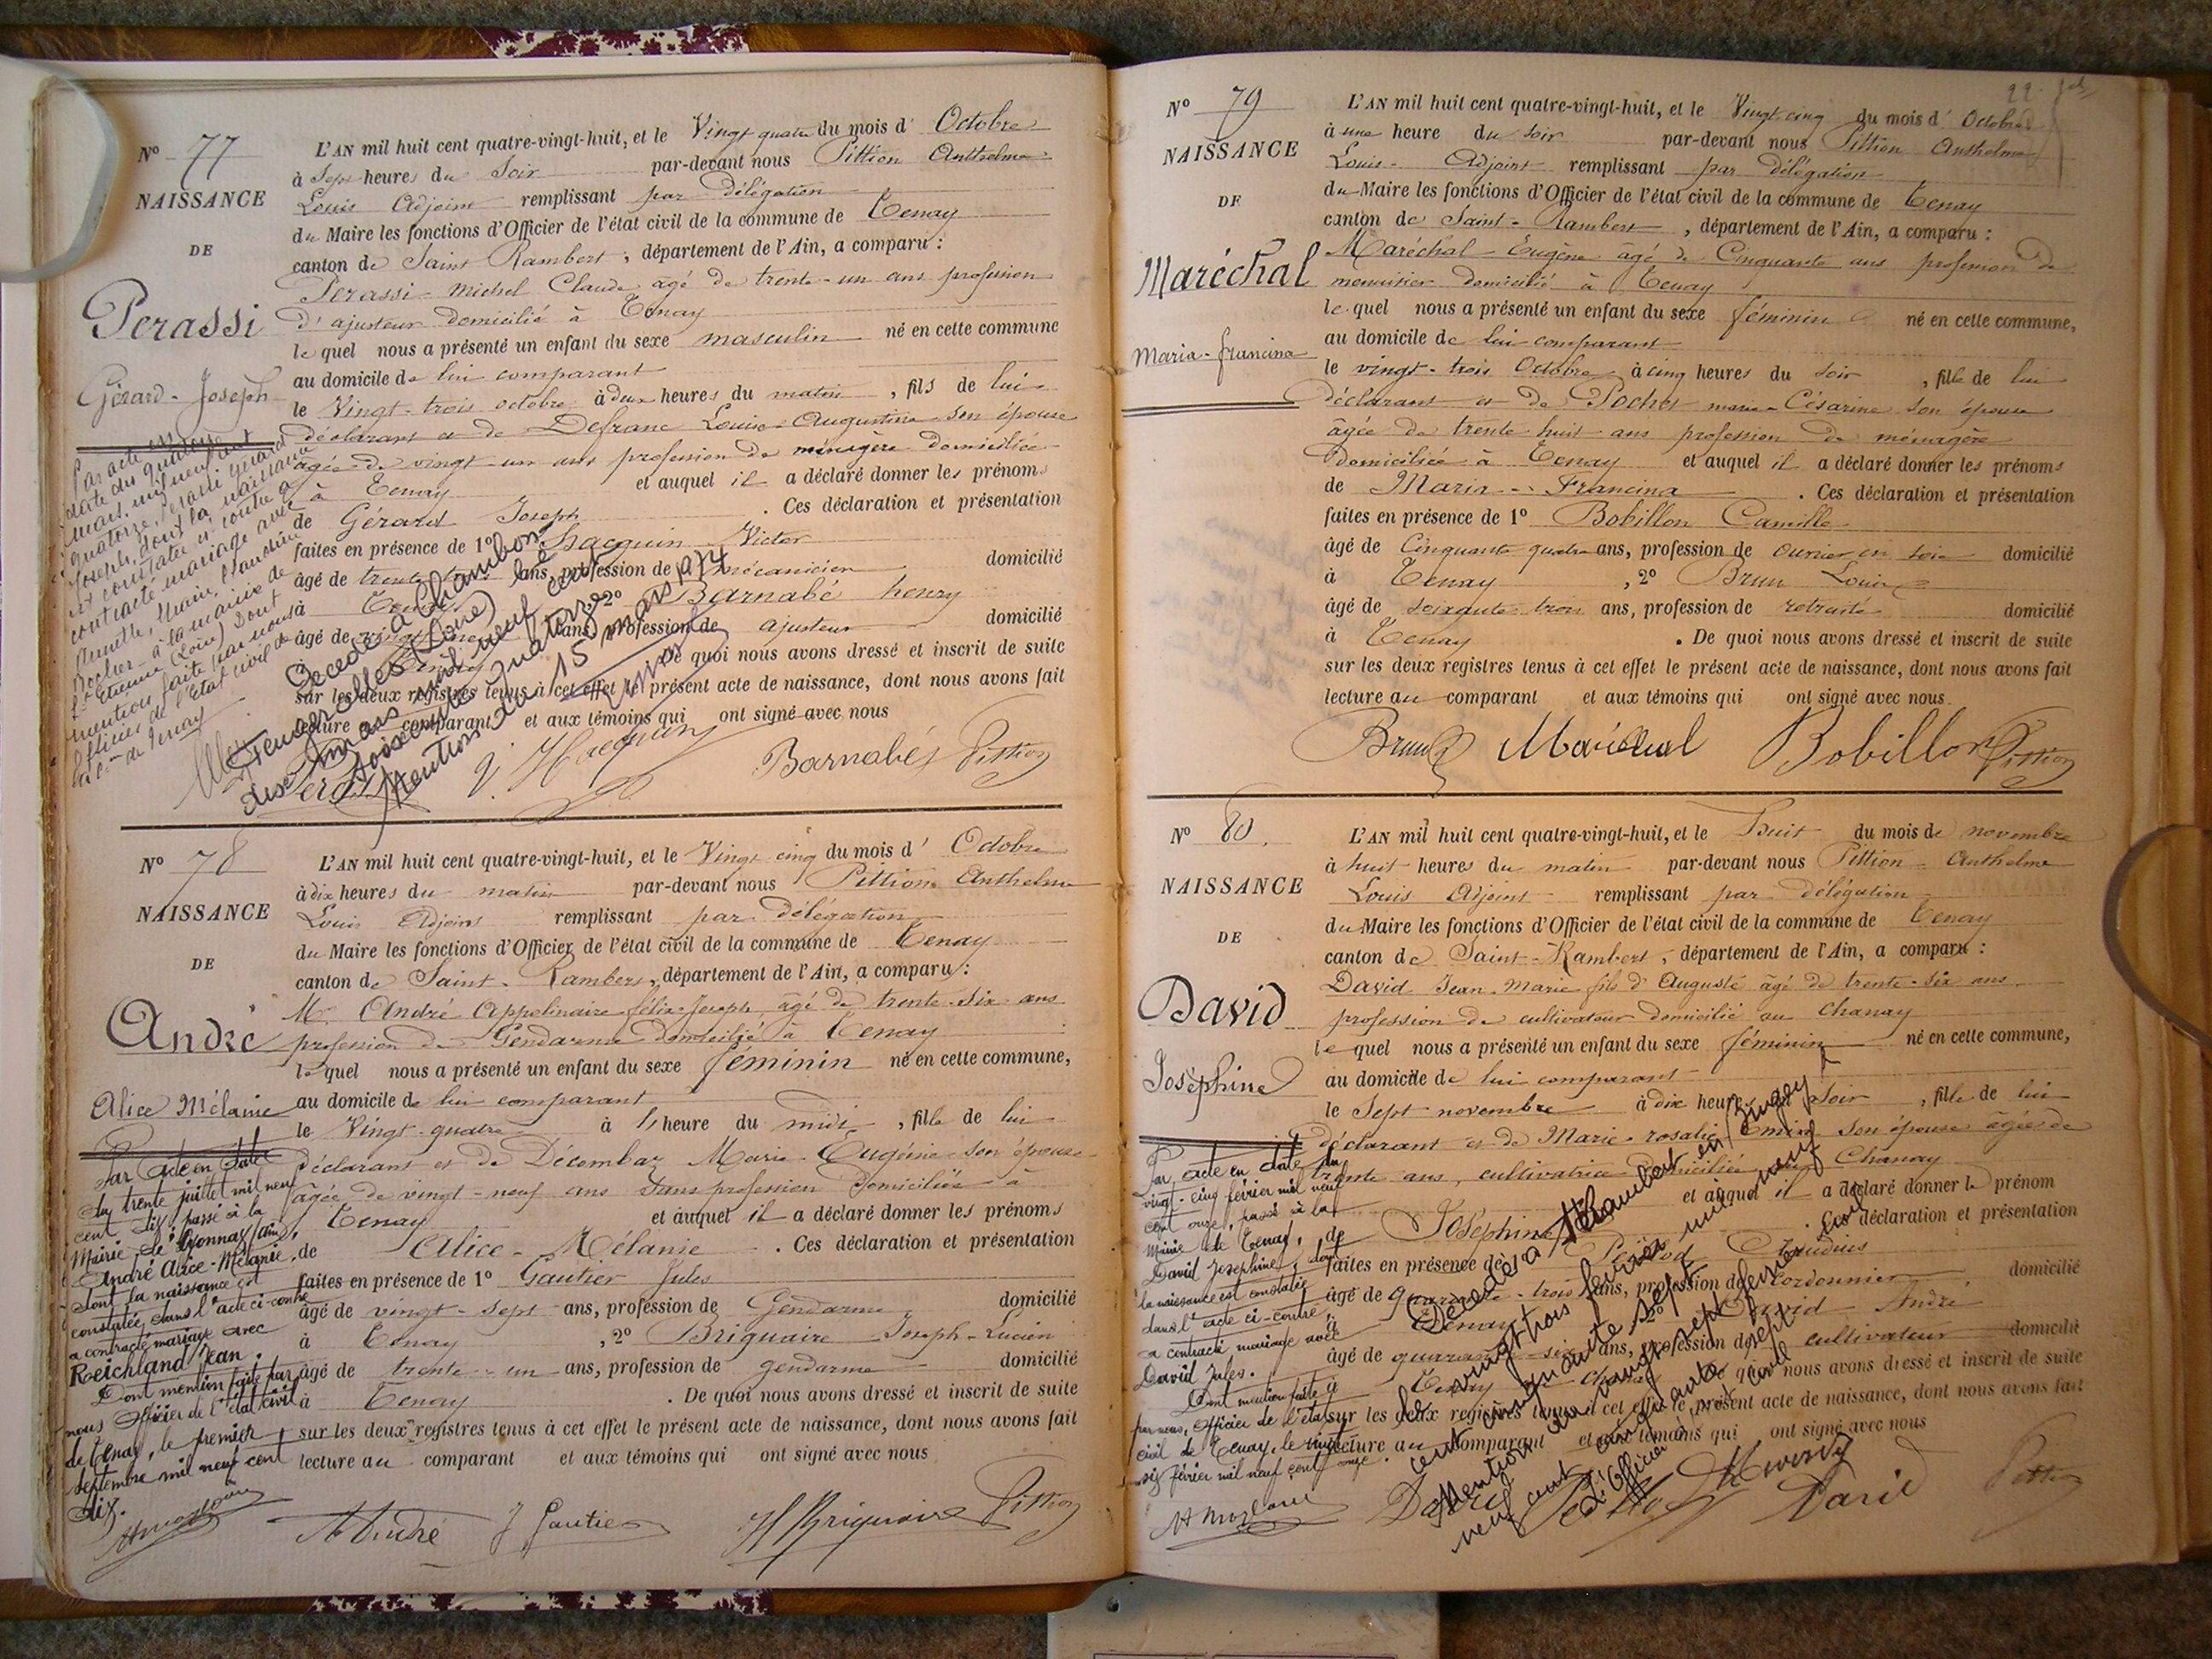 N° 77
NAISSANCE
DE
Perassi
Gérard-Joseph
L'AN mil huit cent quatre-vingt-huit, et le Vingt quatre du mois d' Octobre
à Sept heures du Soir par-devant nous Pittion Anthelme
Louis Adjoint remplissant par délégation
du Maire les fonctions d'Officier de l'état civil de la commune de Tenay
canton de Saint Rambert, département de l'Ain, a comparu :
Perassi Michel Claude âgé de trente-un ans profession
d'ajusteur domicilié à Tenay
le quel nous a présenté un enfant du sexe masculin né en cette commune
au domicile de lui comparant
le Vingt-trois octobre à deux heures du matin, fils de lui
déclarant et de Defranc Louise Augustine son épouse
âgée de vingt un ans profession de ménagère domiciliée
à Tenay et auquel il a déclaré donner les prénoms
de Gérard Joseph. Ces déclaration et présentation
faites en présence de 1° Hacquin Victor
âgé de trente ans, profession de mécanicien domicilié
à Tenay 2° Barnabé henry
âgé de ans, profession de ajusteur domicilié
à Tenay De quoi nous avons dressé et inscrit de suite
sur les deux registres tenus à cet effet le présent acte de naissance, dont nous avons fait
lecture au comparant et aux témoins qui ont signé avec nous
Par acte en
date du quatorze
mars mil neuf cent
quatorze, Perassi Gérard
Joseph, dont la naissance
est constatée ci-contre a
contracté mariage avec
Rocher à la mairie de
St Etienne (Loire) Dont
mention faite par nous
Officier de l'Etat civil de
la Cne de Tenay
Décédé à Chambon
Feugerolles (Loire) le
dix mars mil neuf cent
soixante quatorze
Mention du 15 mars 1974
Perassi V. Hacquin Barnabé Pittion
N° 78
NAISSANCE
DE
André
Alice Mélanie
L'AN mil huit cent quatre-vingt-huit, et le Vingt cinq du mois d' Octobre
à dix heures du matin par-devant nous Pittion Anthelme
Louis Adjoint remplissant par délégation
du Maire les fonctions d'Officier de l'état civil de la commune de Tenay
canton de Saint-Rambert, département de l'Ain, a comparu :
M. André Appolinaire félix Joseph âgé de trente-six ans
profession de Gendarme domicilié à Tenay
le quel nous a présenté un enfant du sexe féminin né en cette commune,
au domicile de lui comparant
le Vingt-quatre à l'heure du midi, fille de lui
déclarant et de Décombaz Marie-Eugénie son épouse
âgée de vingt-neuf ans sans profession domiciliée à
Tenay et auquel il a déclaré donner les prénoms
de Alice-Mélanie. Ces déclaration et présentation
faites en présence de 1° Gautier Jules
âgé de vingt-sept ans, profession de Gendarme domicilié
à Tenay, 2° Briguaire Joseph-Lucien
âgé de trente-un ans, profession de gendarme domicilié
à Tenay. De quoi nous avons dressé et inscrit de suite
sur les deux registres tenus à cet effet le présent acte de naissance, dont nous avons fait
lecture au comparant et aux témoins qui ont signé avec nous
Par acte en date
du trente juillet mil neuf
cent dix passé à la
Mairie de Oyonnax (Ain),
André Alice-Mélanie,
dont la naissance est
constatée dans l'acte ci-contre
a contracté mariage avec
Reichland Jean.
Dont mention faite par
nous Officier de l'état civil
de Tenay, le premier
septembre mil neuf cent
dix.
A André J Gautier H Briguaire Pittion
N° 79
NAISSANCE
DE
Maréchal
Maria-francina
L'AN mil huit cent quatre-vingt-huit, et le Vingt cinq du mois d' Octobre
à une heure du soir par-devant nous Pittion Anthelme
Louis Adjoint remplissant par délégation
du Maire les fonctions d'Officier de l'état civil de la commune de Tenay
canton de Saint-Rambert, département de l'Ain, a comparu :
Maréchal Eugène âgé de Cinquante ans profession de
menuisier domicilié à Tenay
le quel nous a présenté un enfant du sexe féminin né en cette commune,
au domicile de lui comparant
le vingt-trois Octobre à cinq heures du soir, fille de lui
déclarant et de Pochet marie Césarine son épouse
âgée de trente huit ans profession de ménagère
domiciliée à Tenay et auquel il a déclaré donner les prénoms
de Maria-Francina. Ces déclaration et présentation
faites en présence de 1° Bobillon Camille
âgé de Cinquante quatre ans, profession de ouvrier en soie domicilié
à Tenay, 2° Brun Louis
âgé de soixante-trois ans, profession de retraité domicilié
à Tenay. De quoi nous avons dressé et inscrit de suite
sur les deux registres tenus à cet effet le présent acte de naissance, dont nous avons fait
lecture au comparant et aux témoins qui ont signé avec nous.
Brun Maréchal Bobillon Pittion
N° 80.
NAISSANCE
DE
David
Joséphine
L'AN mil huit cent quatre-vingt-huit, et le Huit du mois de novembre
à huit heures du matin par-devant nous Pittion Anthelme
Louis Adjoint remplissant par délégation
du Maire les fonctions d'Officier de l'état civil de la commune de Tenay
canton de Saint-Rambert, département de l'Ain, a comparu :
David Jean-Marie fils d'Auguste âgé de trente-six ans
profession de cultivateur domicilié au Chanay
le quel nous a présenté un enfant du sexe féminin né en cette commune,
au domicile de lui comparant
le Sept novembre à dix heures du soir, fille de lui
déclarant et de Marie-rosalie son épouse âgée de
trente ans, cultivatrice domiciliée au Chanay
et auquel il a déclaré donner le prénom
de Joséphine. Ces déclaration et présentation
faites en présence de 1° Claudius
âgé de quarante-trois ans, profession de Cordonnier domicilié
à Tenay 2° David André
âgé de quarante-six ans, profession de cultivateur domicilié
De quoi nous avons dressé et inscrit de suite
sur les deux registres tenus à cet effet le présent acte de naissance, dont nous avons fait
lecture au comparant et aux témoins qui ont signé avec nous
Par acte en date du
vingt-cinq février mil neuf
cent onze, passé à la
Mairie de Tenay,
David Joséphine, dont
la naissance est constatée
dans l'acte ci-contre,
a contracté mariage avec
David Jules.
Dont mention faite
par nous, Officier de l'état
civil de Tenay, le vingt
six février mil neuf cent onze.
Décédée à St Rambert en Bugey
le vingt trois février mil neuf
cent cinquante sept
Mention du vingt sept février mil
neuf cent cinquante sept
L'Officier d'Etat Civil
David David Pittion